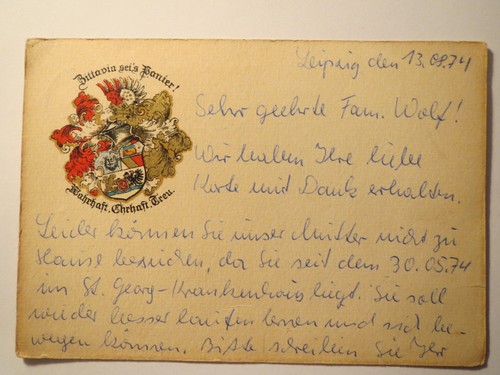 Zittavia sei's Panier!
Wahrhaft. Ehrhaft. Treu.
Leipzig den 13.09.74
Sehr geehrte Fam. Wolf!
Wir haben Ihre liebe
Karte mit Dank erhalten.
Leider können Sie unser Mutter nicht zu
Hause besuchen, da Sie seit dem 30.05.74
im St. Georg-Krankenhaus liegt. Sie soll
wieder besser laufen lernen und sich be-
wegen können. Bitte schreiben Sie Ihr